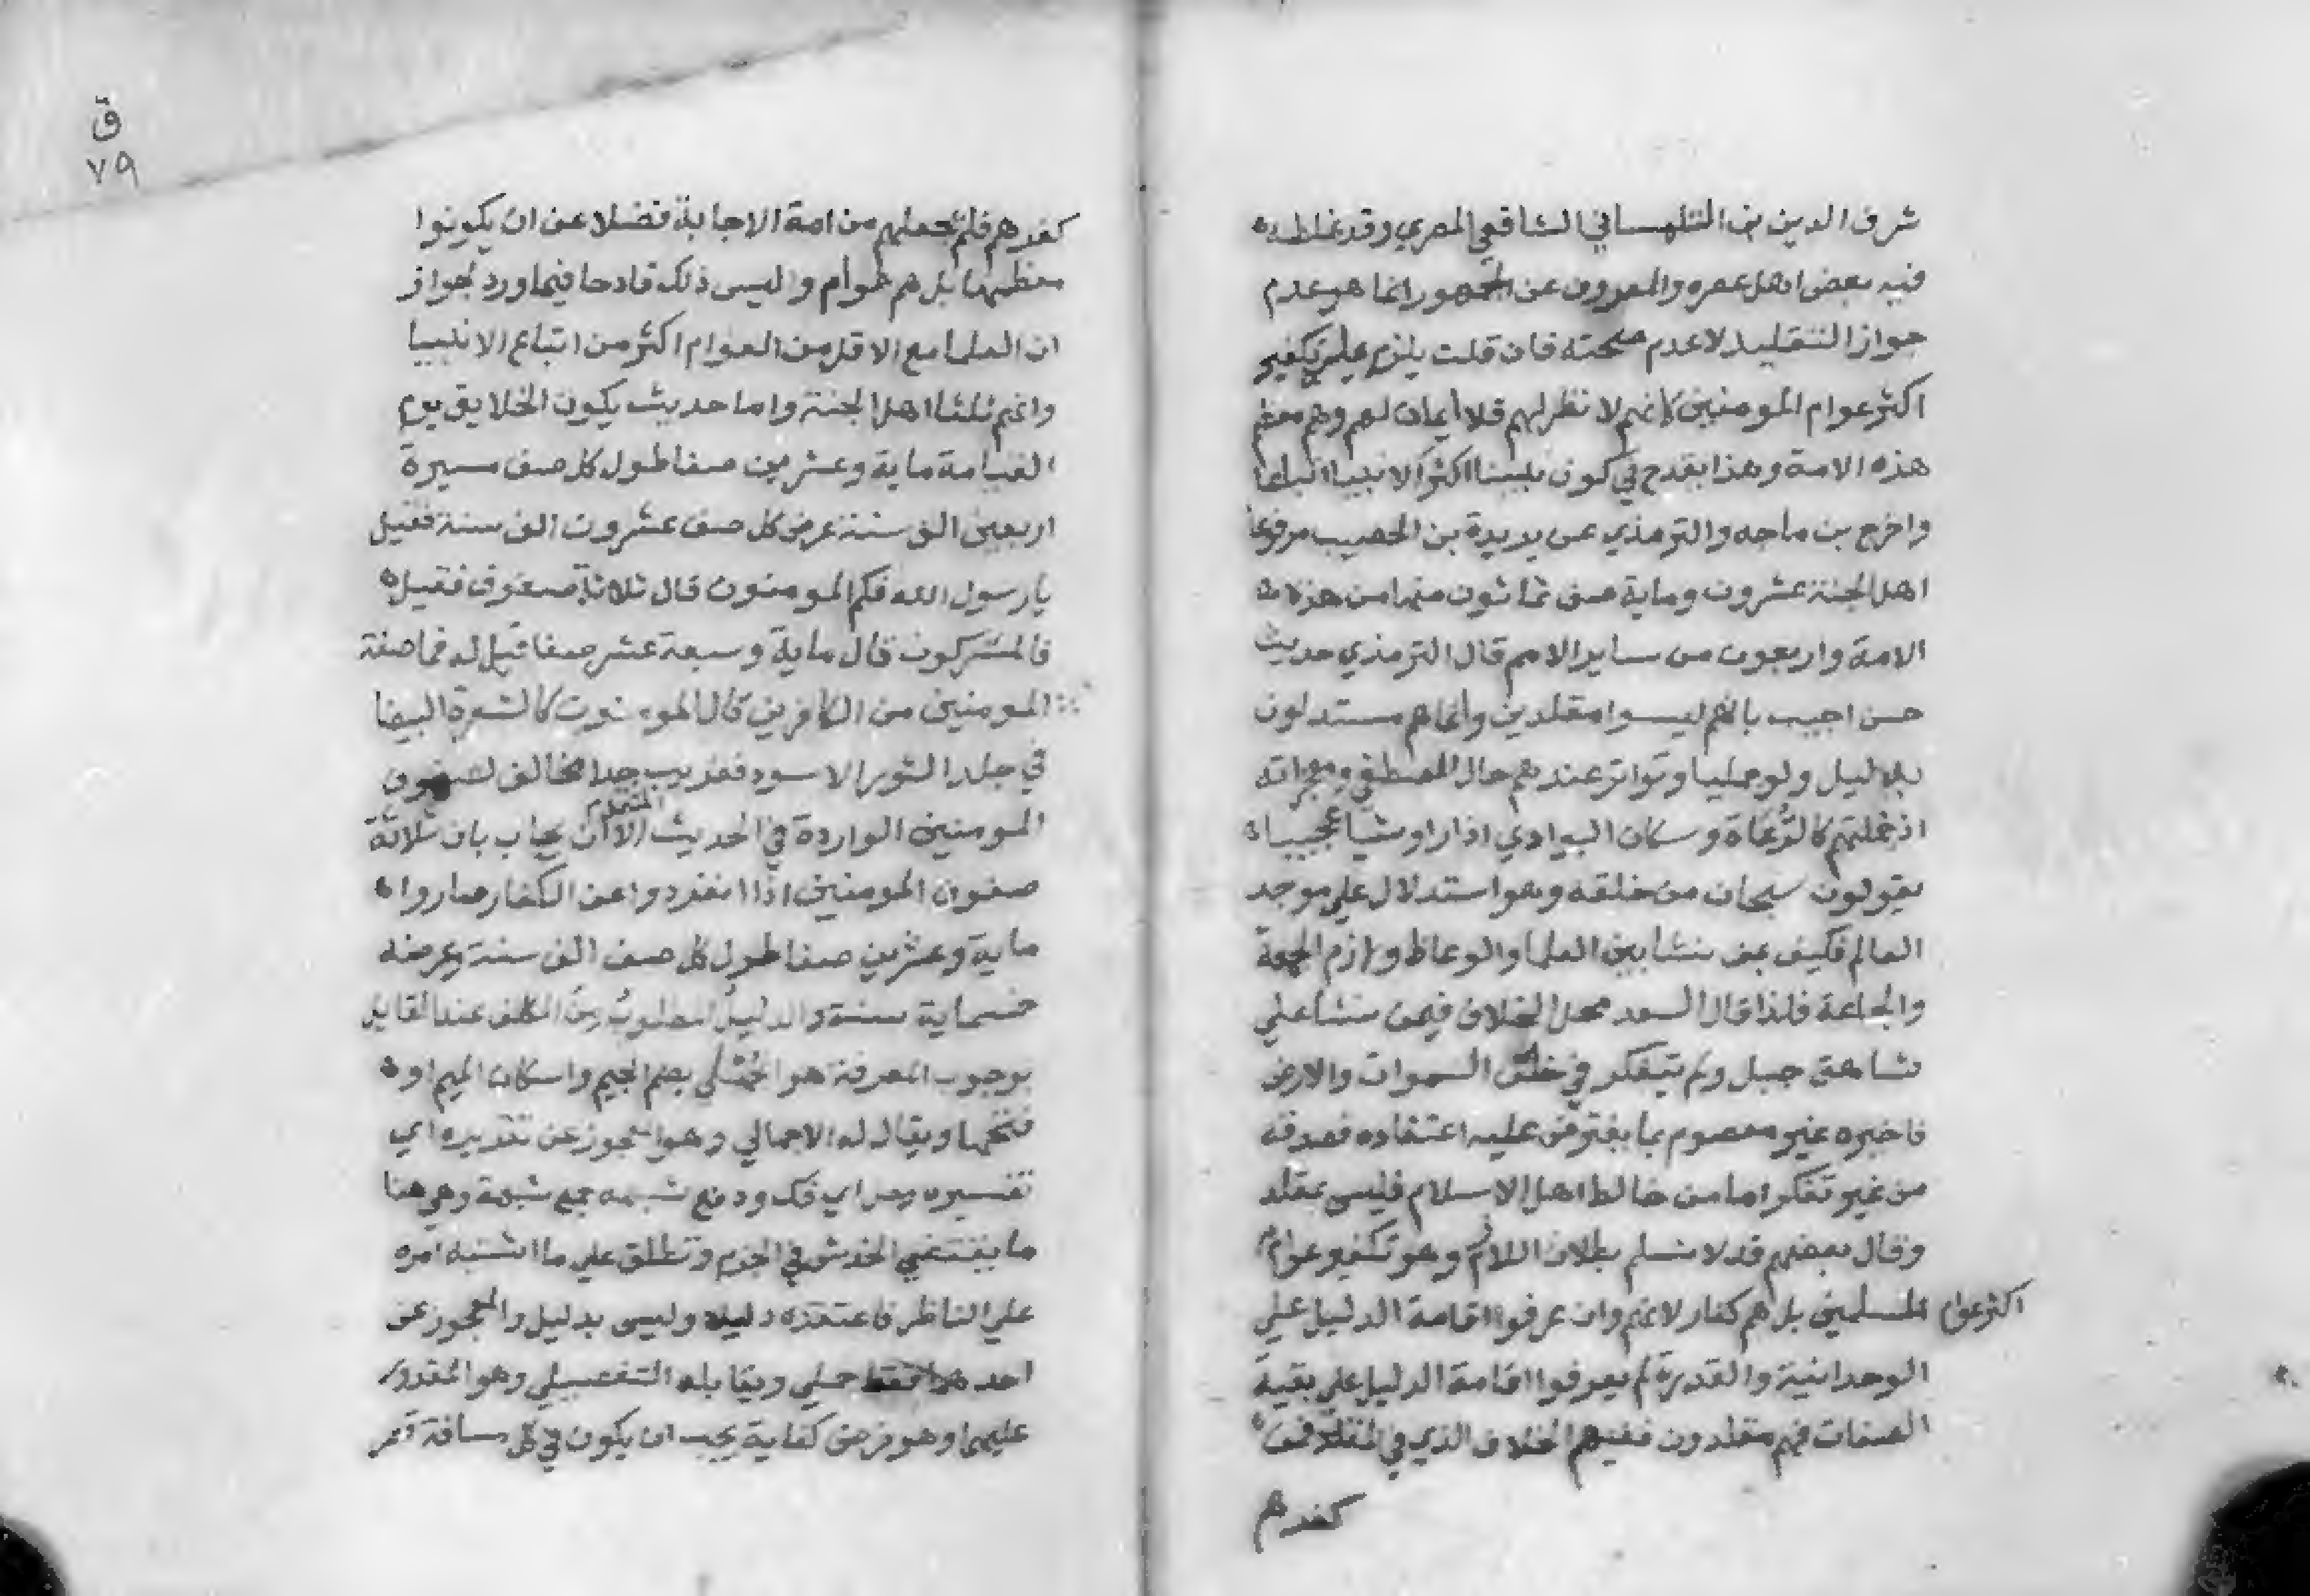 شرف الدين بن التلمساني الشافعي المصري وقد غلطه
فيه بعض اهل عصره والمعروف عن الجمهور انما هو عدم
جواز التقليد لا عدم صحته فان قلت يلزم عليه تكفير
اكثر عوام المومنين كانهم لا نظر لهم فلا ايمان لهم وهم معظم
هذه الامة وهذا يقدح في كون نبينا اكثر الانبيا اتباعا
واخرج بن ماجه والترمذي عن بريدة بن الحصيب مرفوعا
اهل الجنة عشرون وماية صف ثمانون منها من هذه
الامة واربعون من ساير الامم قال الترمذي حديث
حسن اجيب بانهم ليسوا مقلدين وانما هم مستدلون
بدليل ولو جمليا وتواتر عندهم حال المصطفي ومعجزاته
اذ غلبتهم كالرعاة وسكان البوادي اذا راو شيا عجيبا
يقولون سبحان من خلقه وهو استدلال علي موجد
العالم فكيف بمن نشا بين العلما والوعاظ ولازم الجمعة
والجماعة فلذا قال السعد محل الخلاف فيمن نشا علي
شاهق جبل ولم يتفكر في خلق السموات والارض
فاخبره غير معصوم بما يفترض عليه اعتقاده فصدقه
من غير تفكر اما من خالط اهل الاسلام فليس بمقلد
وقال بعضهم قد لا نسلم بطلان اللازم وهو تكفير عوام
اكثر عوام المسلمين بل هم كفار لانهم وان عرفوا اقامة الدليل علي
الوحدانية والقدرة لم يعرفوا اقامة الدليل علي بقية
الصفات فهم مقلدون ففيهم الخلاف الذي في المقلد فمن
كفرهم
ق
٧٩
كفرهم فلم يجعلهم من امة الاجابة فضلا عن ان يكونوا
معظمها بل هم عوام وليس ذلك قادحا فيما ورد لجواز
ان العلما مع الاقل من العوام اكثر من اتباع الانبيا
وانهم ثلثا اهل الجنة واما حديث يكون الخلايق يوم
القيامة ماية وعشرين صفا طول كل صف مسيرة
اربعين الف سنة عرض كل صف عشرون الف سنة فقيل
يا رسول الله فكم المومنون قال ثلاثة صفوف فقيل
فالمشركون قال ماية وسبعة عشر صفا قيل له فما صفة
المومنين من الكافرين قال المومنون كالشعرة البيضا
في جلد الثور الاسود فغريب جدا مخالف لصفوف
المومنين الواردة في الحديث المتقدم الا ان يجاب بان ثلاثة
صفوف المومنين اذا انفردوا عن الكفار صاروا
ماية وعشرين صفا طول كل صف الف سنة وعرضه
خمسماية سنة والدليل المطلوب من المكلف عند القايل
بوجوب المعرفة هو الجملي بضم الجيم واسكان الميم او
فتحها ويقال له الاجمالي وهو المعجوز عن تقريره اي
تفسيره وحل اي فك ودفع شبهه جمع شبهة وهي هنا
ما يقتضي الخدش في الجزم وتطلق علي ما اشتبه امره
علي الناظر فاعتقده دليلا وليس بدليل والمعجوز عن
احدهما فقط جملي ويقابله التفصيلي وهو المقدور
عليهما وهو فرض كفاية يجب ان يكون في كل مسافة قصر